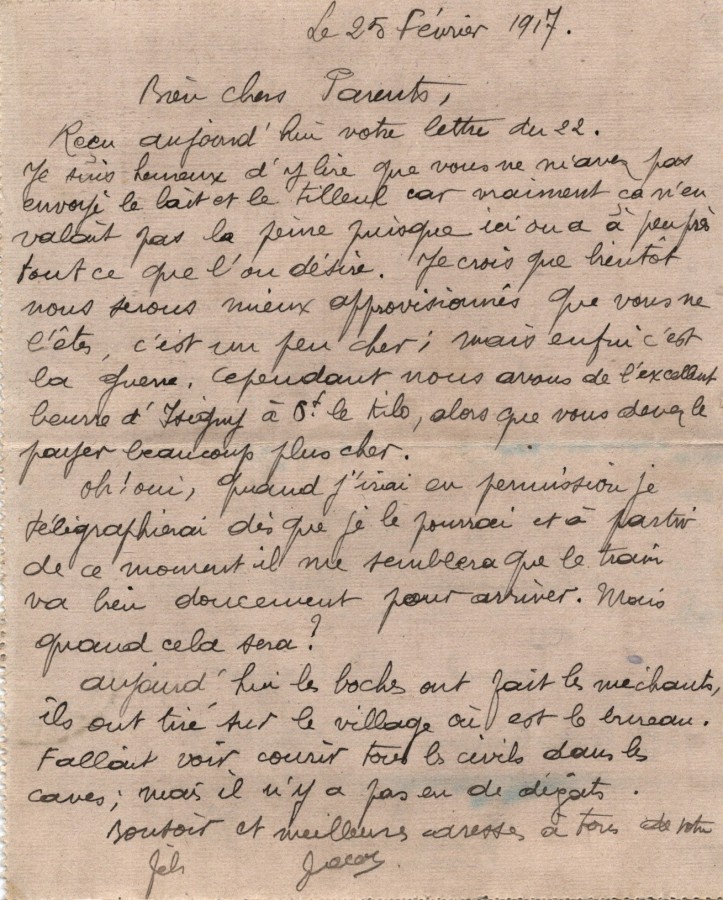 Le 25 Février 1917.
Bien chers Parents,
Reçu aujourd'hui votre lettre du 22.
Je suis heureux d'y lire que vous ne m'avez pas
envoyé le lait et le tilleul car vraiment ça n'en
valait pas la peine puisque ici on a à peu près
tout ce que l'on désire. Je crois que bientôt
nous serons mieux approvisionnés que vous ne
l'êtes, c'est un peu cher; mais enfin c'est
la guerre. Cependant nous avons de l'excellent
beurre d'Isigny à le kilo, alors que vous devez le
payer beaucoup plus cher.
oh! oui, quand j'irai en permission je
télégraphierai dès que je le pourrai et à partir
de ce moment il me semblera que le train
va bien doucement pour arriver. Mais
quand cela sera?
aujourd'hui les boches ont fait les méchants,
ils ont tiré sur le village où est le bureau.
Fallait voir courir tous les civils dans les
caves; mais il n'y a pas eu de dégâts.
Bonsoir et meilleures à tous de votre
fils